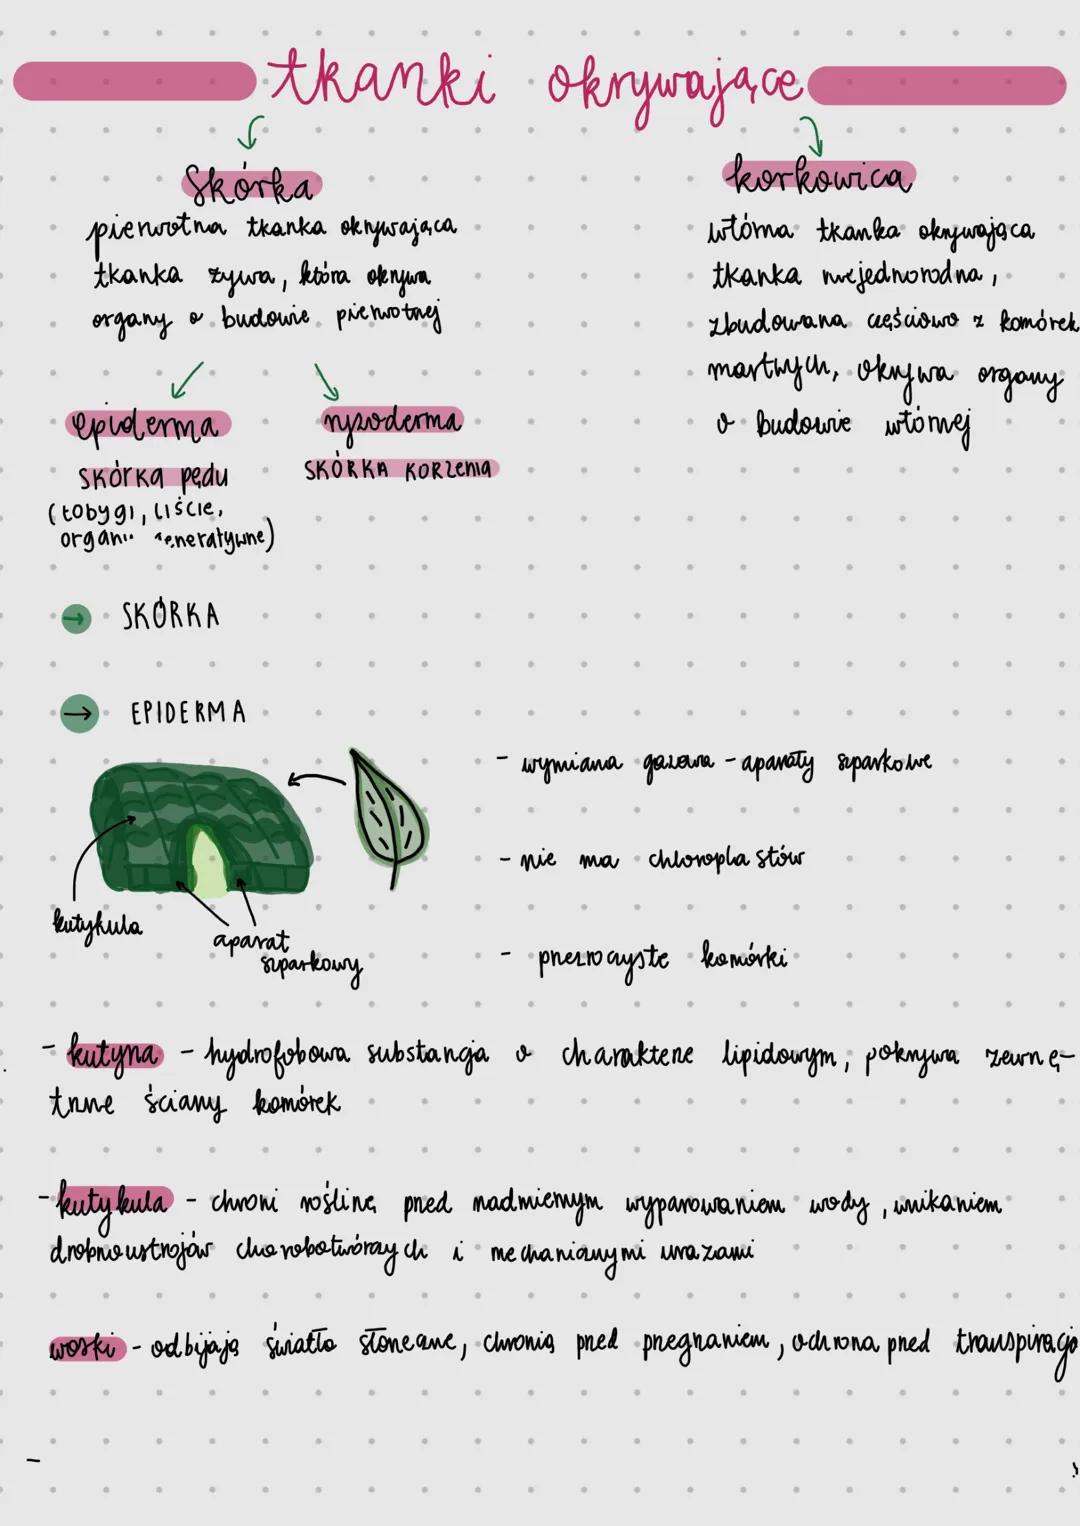 tkanki okrywające
skórka
pierwotna tkanka okrywająca
tkanka żywa, która okrywa
organy o budowie pierwotnej
korkowica
wtórna tkanka okrywająca
tkanka niejednorodna,
zbudowana częściowo z komórek
martwych, okrywa organy
o budowie wtórnej
epiderma
skórka pędu
(łobygi, liście,
organ generatywne)
ryzoderma
SKÓRKA KORZENIA
→ SKÓRKA
→ EPIDERMA
- wymiana gazowa - aparaty szparkowe
- nie ma chloroplastów
- przezroczyste komórki
kutykula
aparat
szparkowy
- kutyna - hydrofobowa substancja o charakterze lipidowym, pokrywa zewnę-
trzne ściany komórek
- kutykula - chroni roślinę przed nadmiernym wyparowaniem wody, wnikaniem
drobnoustrojów chorobotwórczych i mechanicznymi urazami
woski - odbijają światło słoneczne, chronią przed przegrzaniem, ochrona przed transpiracją